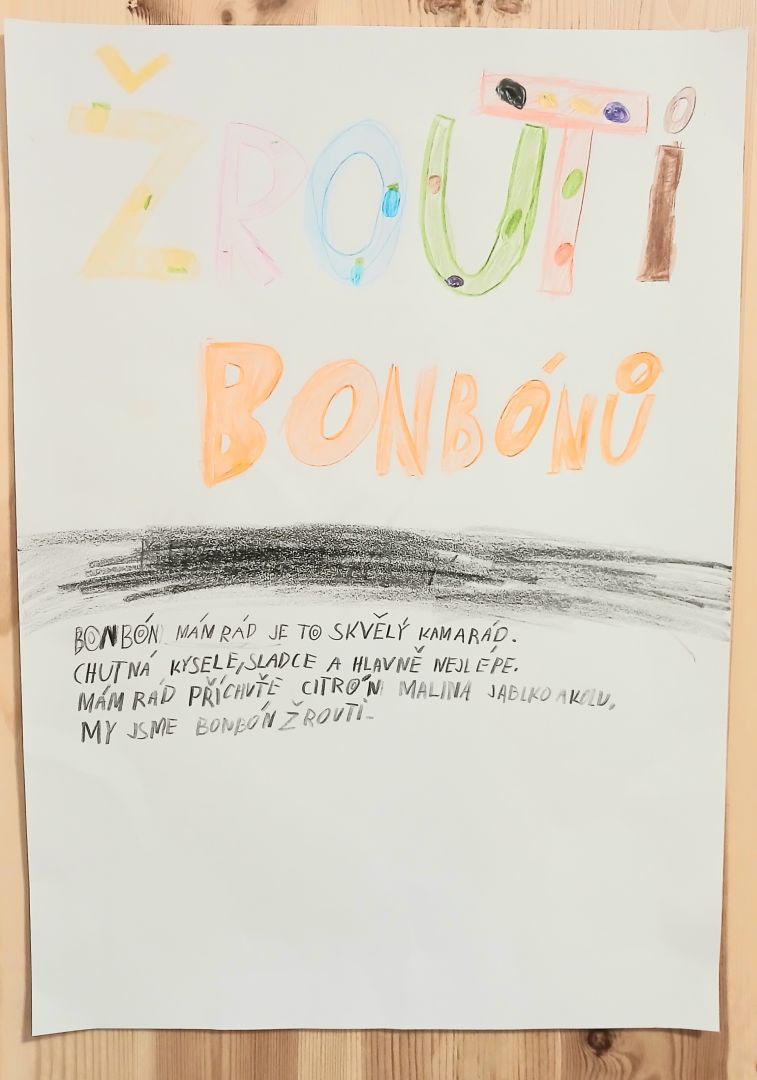 ŽROUTi
BONBÓNŮ
BONBÓN MÁM RÁD JE TO SKVĚLÝ KAMARÁD.
CHUTNÁ KYSELE, SLADCE A HLAVNĚ NEJLÉPE.
MÁM RÁD PŘÍCHUŤE CITRÓN MALINA JABLKO A KOLU,
MY JSME BONBÓN ŽROUTI-